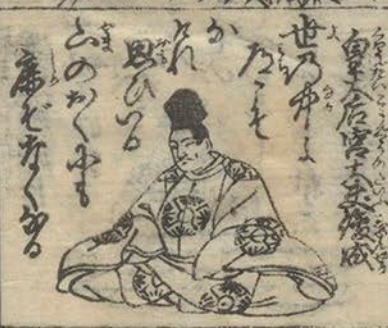 皇太后宮大夫俊成
世乃中よ
道こそ
な
けれ
思ひいる
山のおくにも
鹿ぞなくなる